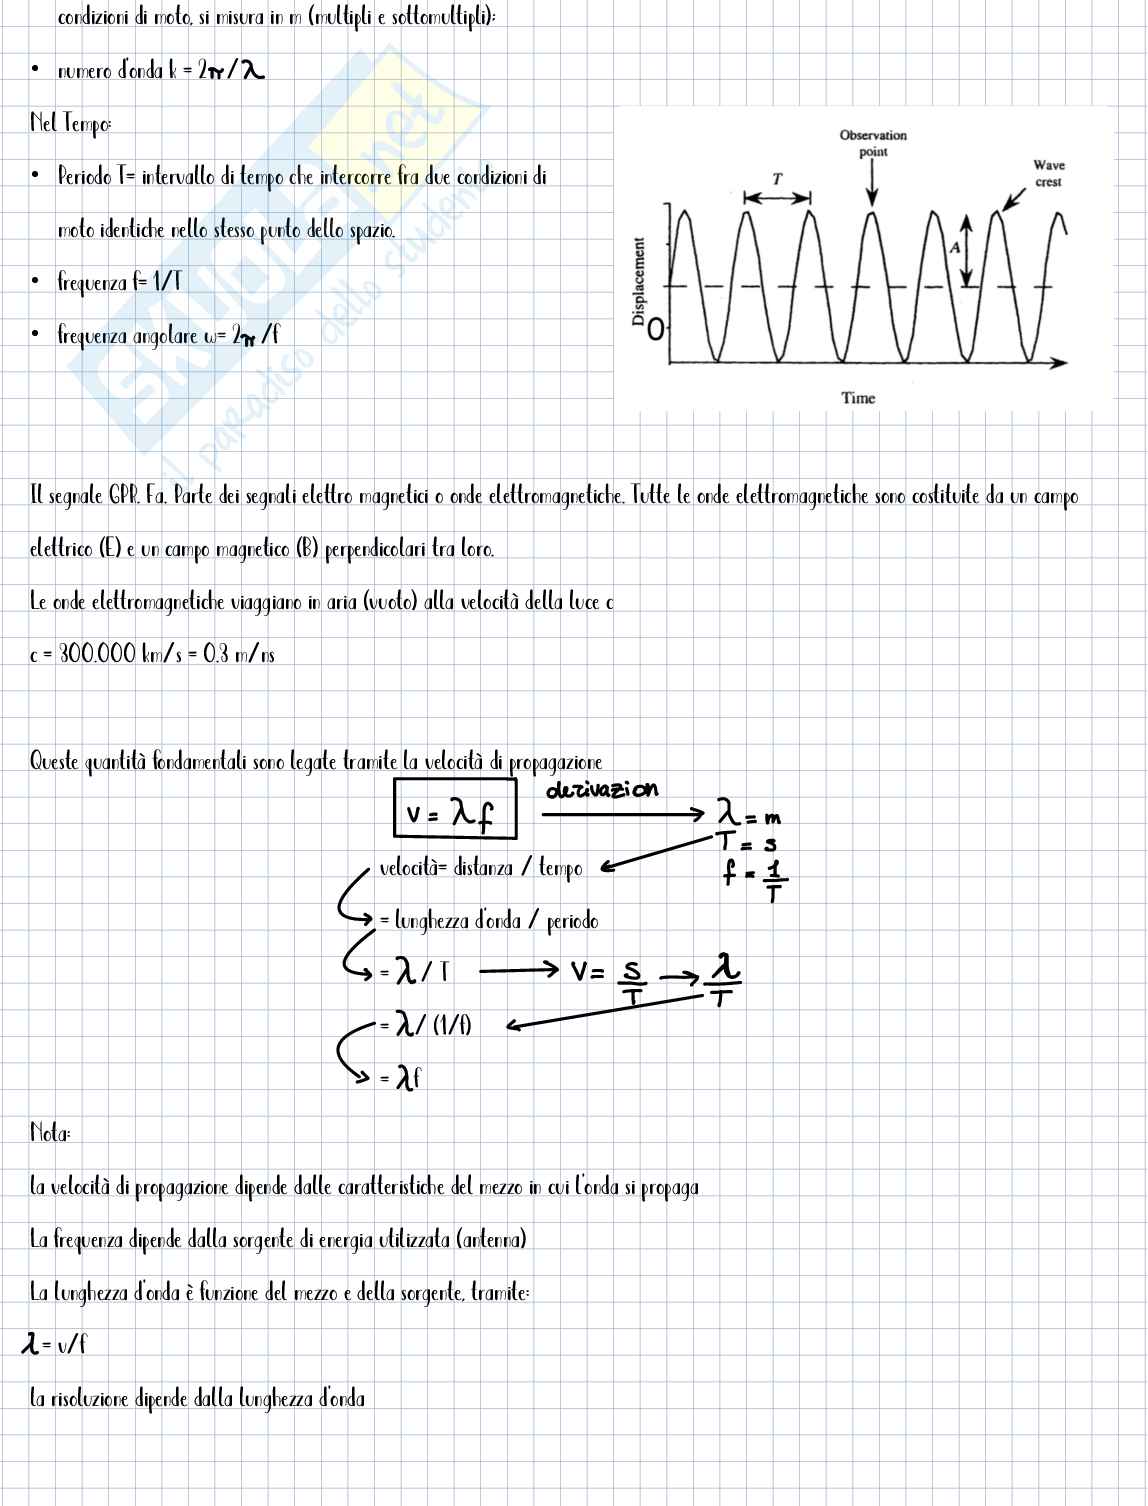 condizioni di moto, si misura in m (multipli e sottomultipli):
• numero d'onda k = 2π/λ
Nel Tempo:
• Periodo T= intervallo di tempo che intercorre fra due condizioni di
moto identiche nello stesso punto dello spazio.
• frequenza f= 1/T
• frequenza angolare ω= 2π/f
Observation
point
Wave
crest
T
A
Displacement
0
Time
SKUOLA.net
il paradiso dello studente
Il segnale GPR. Fa. Parte dei segnali elettro magnetici o onde elettromagnetiche. Tutte le onde elettromagnetiche sono costituite da un campo
elettrico (E) e un campo magnetico (B) perpendicolari tra loro.
Le onde elettromagnetiche viaggiano in aria (vuoto) alla velocità della luce c
c = 300.000 km/s = 0.3 m/ns
Queste quantità fondamentali sono legate tramite la velocità di propagazione
v = λf
derivazion
λ = m
T = s
f = 1/T
velocità= distanza / tempo
= lunghezza d'onda / periodo
= λ/T → V = S/T → λ/T
= λ/ (1/f)
= λf
Nota:
la velocità di propagazione dipende dalle caratteristiche del mezzo in cui l'onda si propaga
La frequenza dipende dalla sorgente di energia utilizzata (antenna)
La lunghezza d'onda è funzione del mezzo e della sorgente, tramite:
λ= v/f
la risoluzione dipende dalla lunghezza d'onda